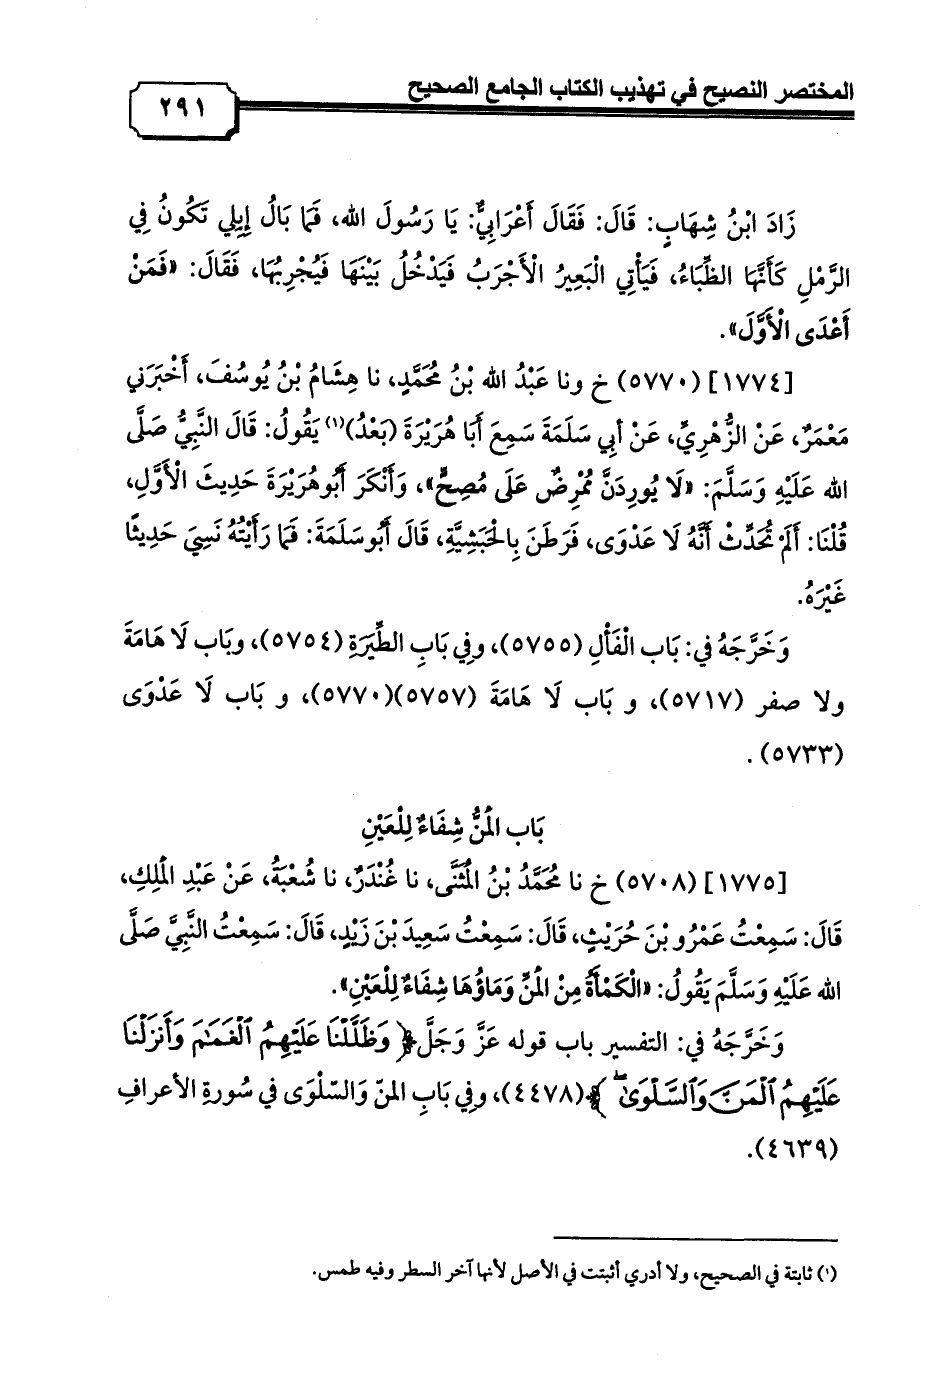 المختصر النصيح في تهذيب الكتاب الجامع الصحيح
٢٩١
زَادَ ابْنُ شِهَابٍ: قَالَ: فَقَالَ أَعْرَابِيٌّ: يَا رَسُولَ الله، فَمَا بَالُ إِبِلِي تَكُونُ فِي
الرَّمْلِ كَأَنَّهَا الظِّبَاءُ، فَيَأْتِي الْبَعِيرُ الْأَجْرَبُ فَيَدْخُلُ بَيْنَهَا فَيُجْرِبُهَا، فَقَالَ: «فَمَنْ
أَعْدَى الْأَوَّلَ».
[١٧٧٤] (٥٧٧٠) خ ونا عَبْدُ الله بْنُ مُحَمَّدٍ، نا هِشَامُ بْنُ يُوسُفَ، أَخْبَرَنِي
مَعْمَرٌ، عَنْ الزُّهْرِيِّ، عَنْ أبِي سَلَمَةَ سَمِعَ أَبَا هُرَيْرَةَ (بَعْدُ)(١) يَقُولُ: قَالَ النَّبِيُّ صَلَّى
الله عَلَيْهِ وَسَلَّمَ: «لَا يُورِدَنَّ مُمْرِضٌ عَلَى مُصِحٍّ»، وَأَنْكَرَ أَبُو هُرَيْرَةَ حَدِيثَ الْأَوَّلِ،
قُلْنَا: أَلَمْ تُحَدِّثْ أَنَّهُ لَا عَدْوَى، فَرَطَنَ بِالْحَبَشِيَّةِ، قَالَ أَبُو سَلَمَةَ: فَمَا رَأَيْتُهُ نَسِيَ حَدِيثًا
غَيْرَهُ.
وَخَرَّجَهُ في: بَاب الْفَأْلِ (٥٧٥٥)، وفِي بَابِ الطِّيَرَةِ (٥٧٥٤)، وبَاب لَا هَامَةَ
ولا صفر (٥٧١٧)، و بَاب لَا هَامَةَ (٥٧٥٧)(٥٧٧٠)، و بَاب لَا عَدْوَى
(٥٧٣٣).
بَاب الْمَنُّ شِفَاءٌ لِلْعَيْنِ
[١٧٧٥] (٥٧٠٨) خ نا مُحَمَّدُ بْنُ الْمُثَنَّى، نا غُنْدَرٌ، نا شُعْبَةُ، عَنْ عَبْدِ الْمَلِكِ،
قَالَ: سَمِعْتُ عَمْرَو بْنَ حُرَيْثٍ، قَالَ: سَمِعْتُ سَعِيدَ بْنَ زَيْدٍ، قَالَ: سَمِعْتُ النَّبِيَّ صَلَّى
الله عَلَيْهِ وَسَلَّمَ يَقُولُ: «الْكَمْأَةُ مِنْ الْمَنِّ وَمَاؤُهَا شِفَاءٌ لِلْعَيْنِ».
وَخَرَّجَهُ في: التفسير باب قوله عَزَّ وَجَلَّ ﴿وَظَلَّلْنَا عَلَيْهِمُ ٱلْغَمَٰمَ وَأَنزَلْنَا
عَلَيْهِمُ ٱلْمَنَّ وَٱلسَّلْوَىٰ ۖ﴾ (٤٤٧٨)، وفِي بَابِ المنّ وَالسّلْوَى في سُورةِ الأعرافِ
(٤٦٣٩).
(١) ثابتة في الصحيح، ولا أدري أثبتت في الأصل لأنها آخر السطر وفيه طمس.